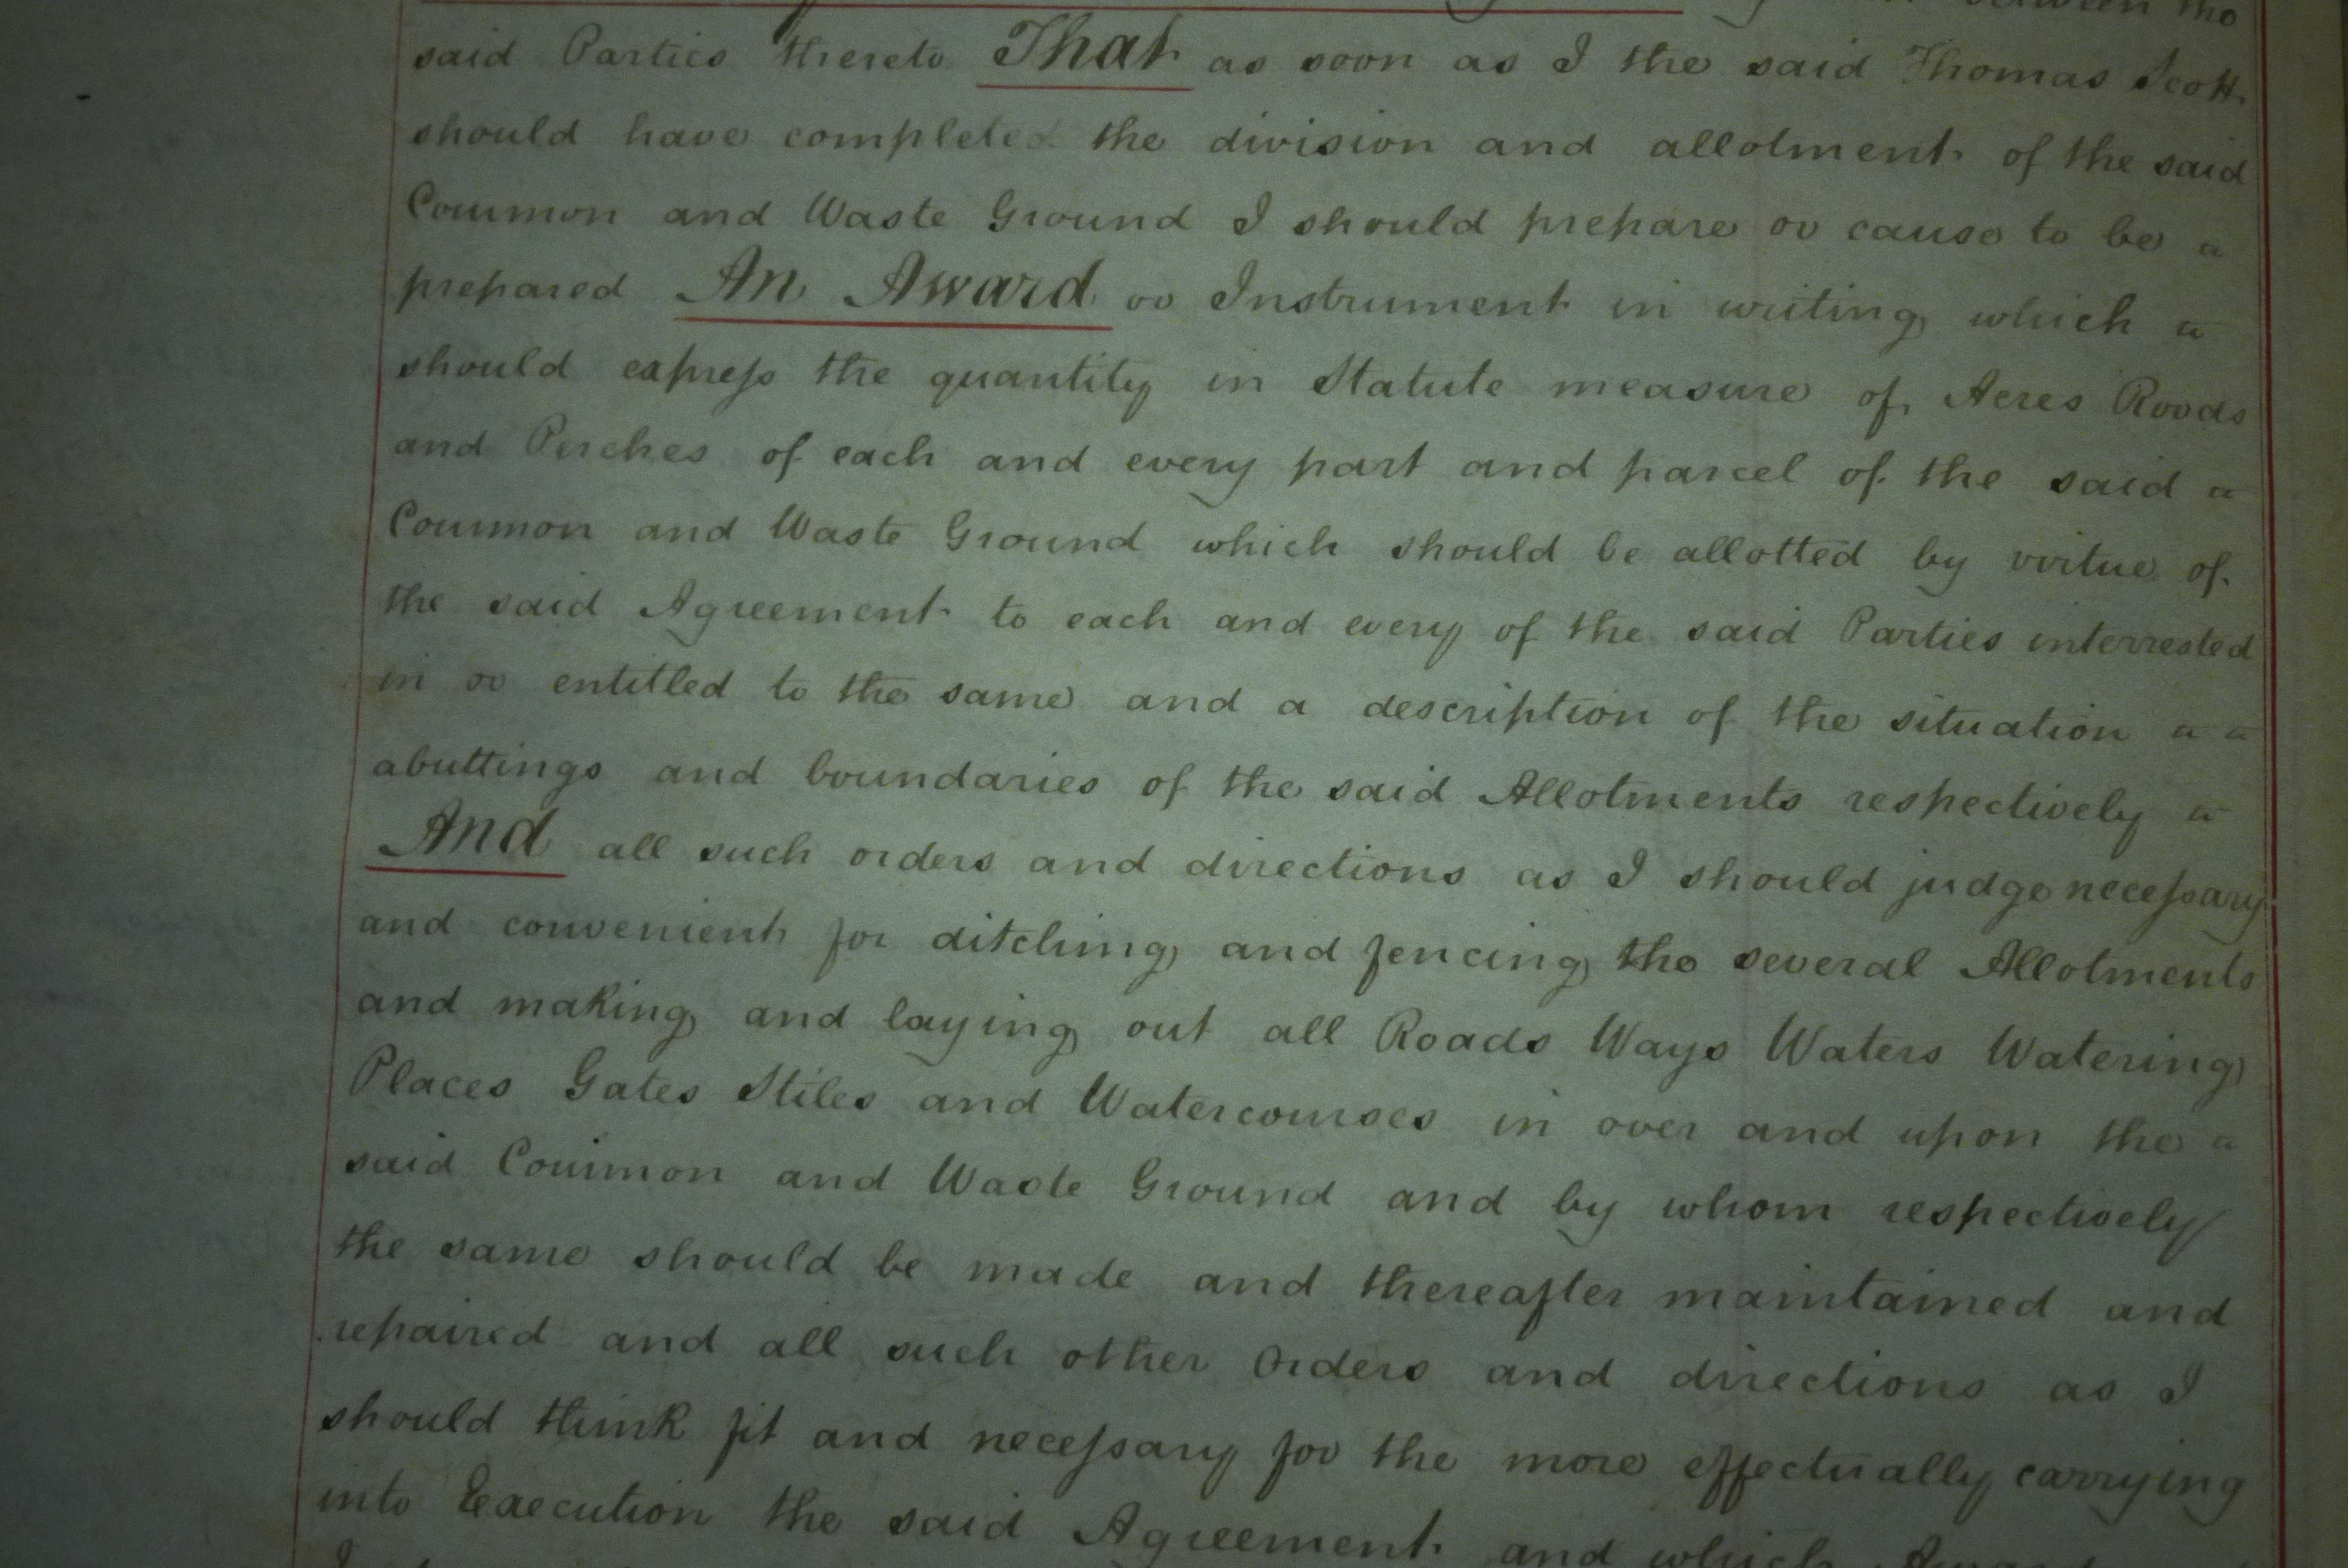 between the
said Parties thereto That as soon as I the said Thomas Scott
should have completed the division and allotment of the said
Common and Waste Ground I should prepare or cause to be
prepared An Award or Instrument in writing which
should express the quantity in Statute measure of Acres Roods
and Perches of each and every part and parcel of the said
Common and Waste Ground which should be allotted by virtue of
the said Agreement to each and every of the said Parties interrested
in or entitled to the same and a description of the situation
abuttings and boundaries of the said Allotments respectively
And all such orders and directions as I should judge necessary
and convenient for ditching and fencing the several Allotments
and making and laying out all Roads Ways Waters Watering
Places Gates Stiles and Watercourses in over and upon the
said Common and Waste Ground and by whom respectively
the same should be made and thereafter maintained and
repaired and all such other Orders and directions as I
should think fit and necessary for the more effectually carrying
into Execution the said Agreement and which Award